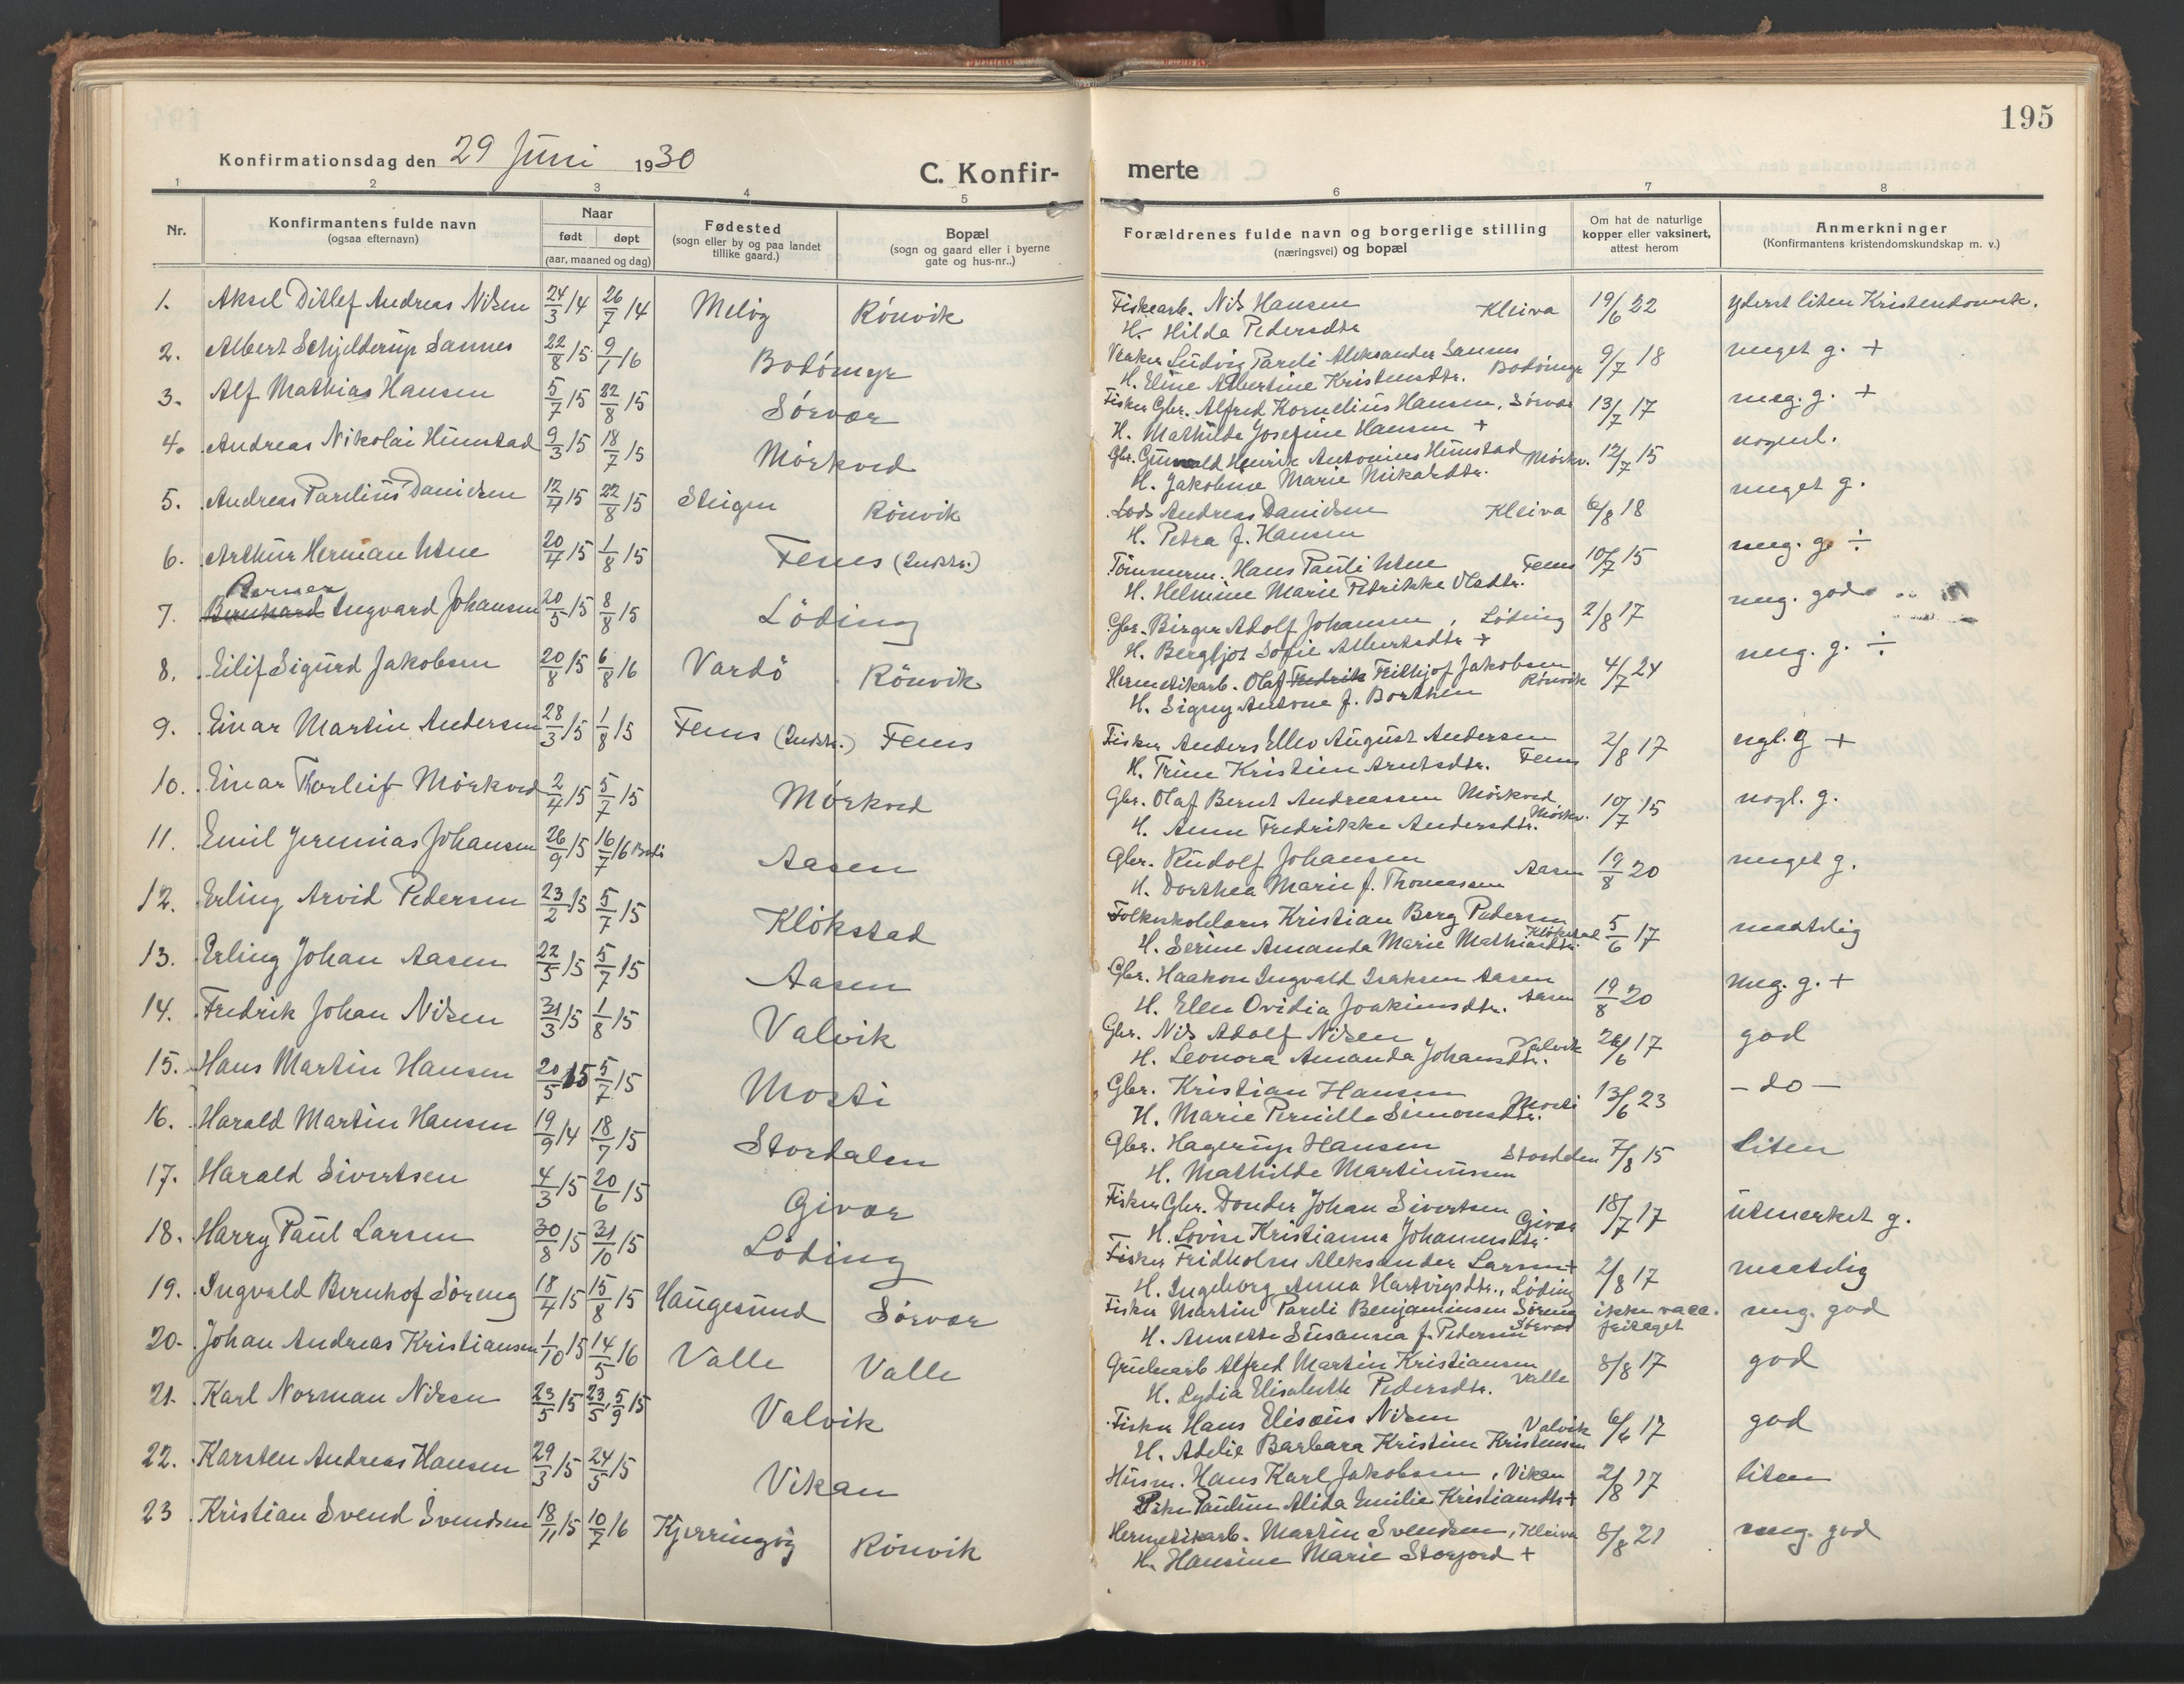 195
Konfirmationsdag den 29 Juni 1930
C. Konfir-
merte
1 2 3 4 5 6 7 8
Nr.
Konfirmantens fulde navn
(ogsaa efternavn)
Naar
født døpt
(aar, maaned og dag)
Fødested
(sogn eller by og paa landet
tillike gaard.)
Bopæl
(sogn og gaard eller i byerne
gate og hus-nr..)
Forældrenes fulde navn og borgerlige stilling
(næringsvei) og bopæl
Om hat de naturlige
kopper eller vaksinert,
attest herom
Anmerkninger
(Konfirmantens kristendomskundskap m. v.)
1. Aksel Ditlef Andreas Nilsen 24/3 14 26/7 14 Meløy Rönvik Fiskearb. Nils Hansen Kleiva 19/6 22 yderst liten Kristendomsk.
H. Hilda Pedersdtr
2. Albert Schjelderup Sannes 22/8 15 9/1 16 Bodömyr Vraker Ludvig Pareli Aleksander Sannes 9/7 18 meget g. +
H. Eline Albertine Kristensdtr. Bodömyr
3. Alf Mathias Hansen 5/7 15 22/8 15 Sörvær Fisker Gbr. Alfred Kornelius Hansen, Sörvær 13/7 17 meg. g. +
H. Mathilde Josefine Hansen +
4. Andreas Nikolai Hunstad 9/3 15 18/7 15 Mörkved Gbr. Gunvald Henrik Antonius Hunstad Mörkv. 12/7 15 nogenl.
H. Jakobine Marie Mikalsdtr.
5. Andreas Parelius Danielsen 12/4 15 22/8 15 Steigen Rönvik Lods Andreas Danielsen Kleiva 6/8 18 meget g.
H. Petra f. Hansen
6. Arthur Herman Utne 20/4 15 1/8 15 Fenes (Indstr.) Tömmerm. Hans Pauli Utne Fenes 10/7 15 meg. g. ÷
H. Helmine Marie Petrikke Olsdtr.
Berner
7. Bernhard Ingvard Johansen 20/5 15 8/8 15 Löding Gbr. Birger Adolf Johansen, Löding 2/8 17 meg. god
H. Bergljot Sofie Albertsdtr +
8. Eilif Sigurd Jakobsen 20/8 15 6/8 16 Vardö Rönvik Hermetikarb. Olaf Fredrik Frithjof Jakobsen 4/7 24 meg. g. ÷
H. Signy Antone f. Borthen Rönvik
9. Einar Martin Andersen 28/3 15 1/8 15 Fenes (Indstr.) Fenes Fisker Anders Elleo August Andersen 2/8 17 ngl. g +
H. Trine Kristine Arntsdtr. Fenes
10. Einar Thorleif Mörkved 2/4 15 5/7 15 Mörkved Gbr. Olaf Bernt Andreassen Mörkved 10/7 15 nogl. g.
H. Anne Fredrikke Andersdtr. Mörkv.
11. Emil Jeremias Johansen 26/9 15 16/7 16 Bodö Aasen Gbr. Rudolf Johansen Aasen 19/8 20 meget g.
H. Dorthea Marie f. Thomassen
12. Erling Arvid Pedersen 23/2 15 5/7 15 Klökstad Folkeskolelærer Kristian Berg Pedersen 5/6 17 maatelig
H. Serine Amanda Marie Mathiasdtr. Klökstad
13. Erling Johan Aasen 22/5 15 5/7 15 Aasen Gbr. Haakon Ingvald Isaksen Aasen 19/8 20 meg. g. +
H. Ellen Ovidia Joakimsdtr. Aasen
14. Fredrik Johan Nilsen 31/3 15 1/8 15 Valvik Gbr. Nils Adolf Nilsen Valvik 26/6 17 god
H. Leonora Amanda Johansdtr.
15. Hans Martin Hansen 20/5 15 5/7 15 Mosti Gbr. Kristian Hansen Mosti 13/6 23 - do -
H. Marie Pernille Simonsdtr.
16. Harald Martin Hansen 19/9 14 18/7 15 Stordalen Gbr. Hagerup Hansen Stordalen 7/8 15 liten
H. Mathilde Martinussen
17. Harald Sivertsen 4/3 15 20/6 15 Givær Fisker Gbr. Donder Johan Sivertsen 18/7 17 utmerket g.
H. Lovise Kristianna Johannesdtr. Givær
18. Harry Paul Larsen 30/8 15 31/10 15 Löding Fisker Fridholm Aleksander Larsen + 2/8 17 maatelig
H. Ingeborg Anna Hartvigsdtr., Löding
19. Ingvald Bernhof Söreng 18/4 15 15/8 15 Haugesund Sörvær Fisker Martin Pareli Benjaminsen Söreng ikke vacc. meg. god
H. Annette Susanna f. Pedersen Sörvær fritaget
20. Johan Andreas Kristiansen 1/10 15 14/5 16 Valle Valle Grubearb Alfred Martin Kristiansen 8/8 17 god
H. Lydia Elisabeth Pedersdtr. Valle
21. Karl Norman Nilsen 23/5 15 23/5, 5/9 15 Valvik Fisker Hans Elisæus Nilsen Valvik 6/6 17 god
H. Adelie Barbara Kristine Kristensen
22. Karsten Andreas Hansen 29/3 15 24/5 15 Vikan Husm. Hans Karl Jakobsen, Vikan 2/8 17 liten
Pike Pauline Alida Emilie Kristiansdtr +
23 Kristian Svend Svendsen 18/11 15 10/7 16 Kjerringöy Rönvik Hermetikarb. Martin Svendsen, Kleiva 8/8 21 meg. god
H. Hansine Marie Storjord +